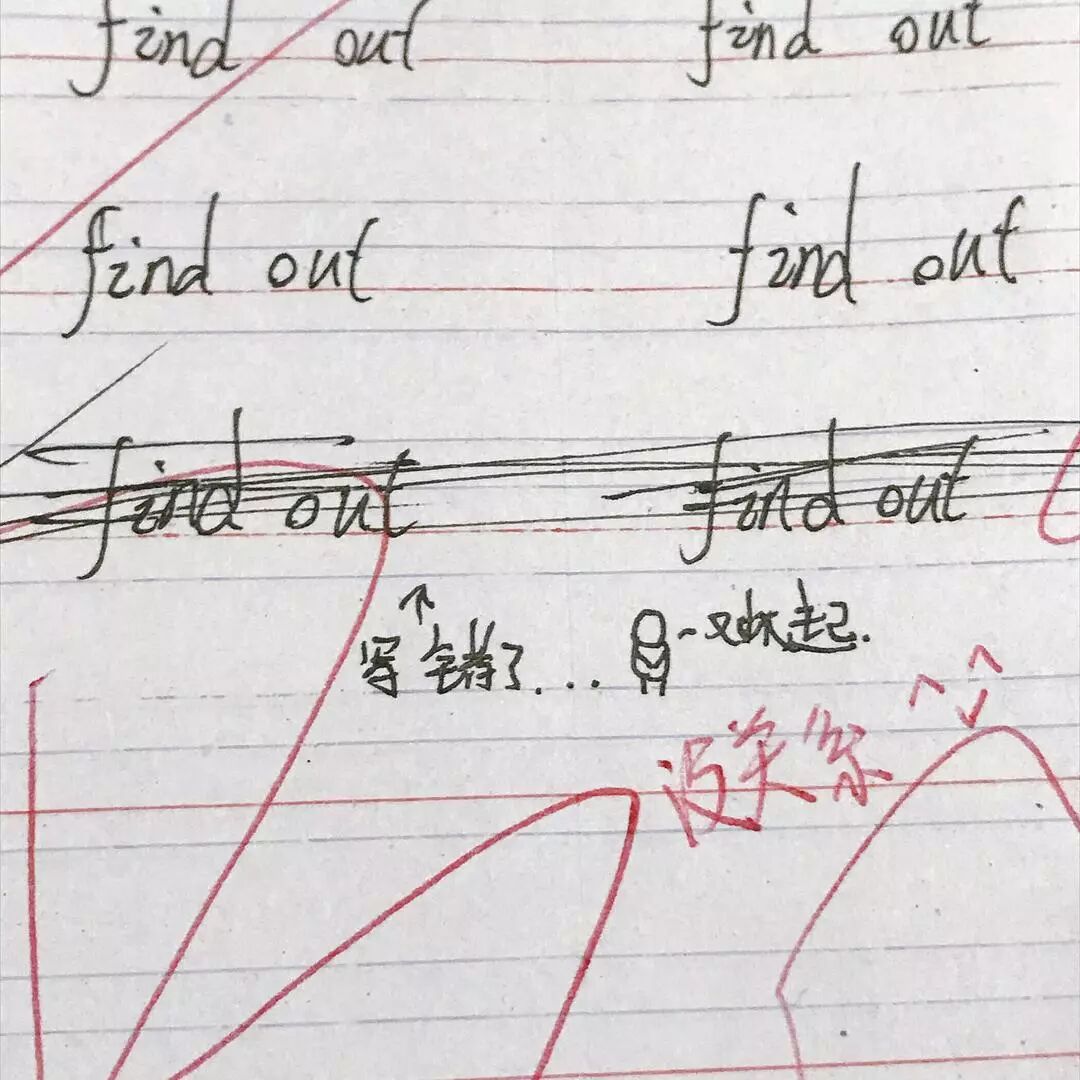 find out find out
find out find out
find out find out
写错了... 对不起.
没关系